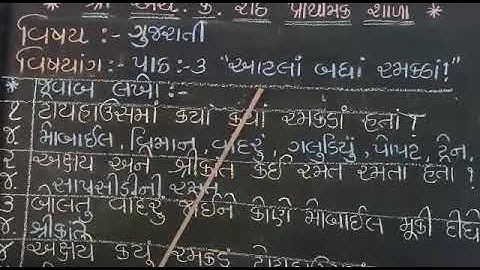 * શ્રી એચ. કે. રાઠ પ્રાથમિક શાળા *
વિષય :- ગુજરાતી
વિષયાંગ :- પાઠ :- ૩ "આટલાં બધાં રમકડાં!"
* જવાબ લખો :-
૧ ટોયહાઉસમાં ક્યાં ક્યાં રમકડાં હતાં ?
જ. મોબાઈલ, વિમાન, વાંદરું, ગલુડિયું, પોપટ, ટ્રેન,
૨ અક્ષય અને શ્રીકાંત કઈ રમત રમતા હતા ?
જ. સાપસીડીની રમત
૩ બોલતું વાંદરું લઈને કોણે મોબાઈલ મૂકી દીધો
જ શ્રીકાંતે
૪ અક્ષયે કયું રમકડું